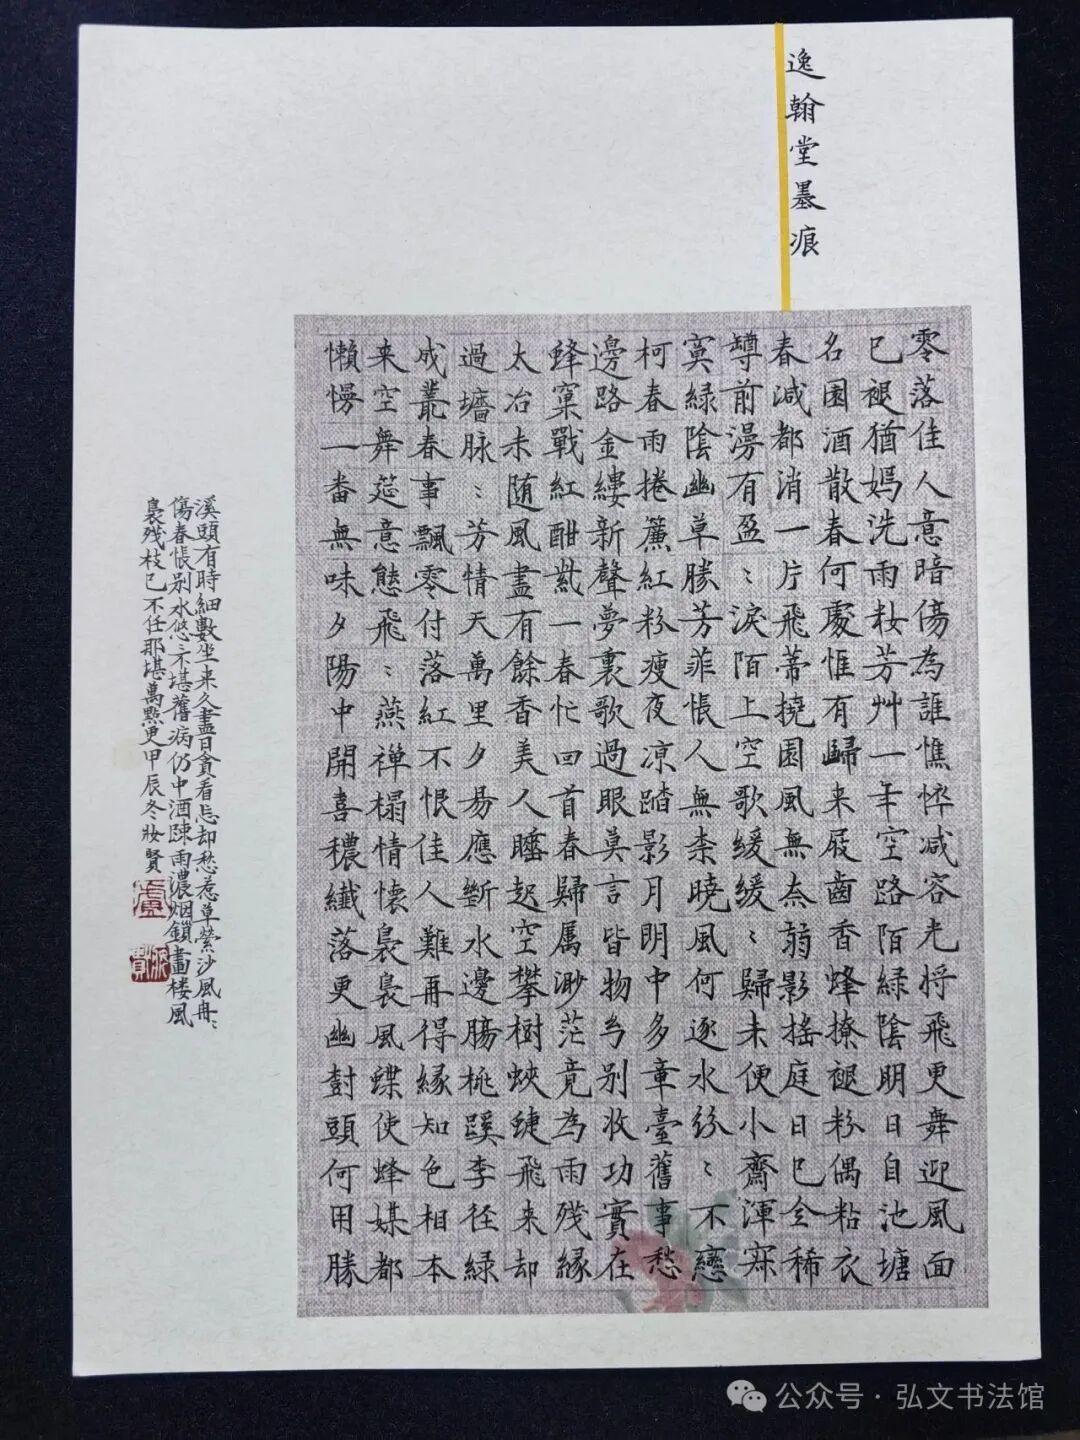 逸翰堂墨痕
零落佳人意暗傷為誰憔悴减容光将飛更舞迎風面
已褪猶嫣洗雨妆芳艸一年空路陌緑陰明日自池塘
名園酒散春何處惟有歸来屐齒香烽撩褪粉偶粘衣
春减都消一片飛蒂撓園風無奈弱影搖庭日已全稀
罇前漫有盈〻淚陌上空歌緩緩〻歸未便小齋渾寂
寞緑陰幽草勝芳菲悵人無柰曉風何逐水紛〻不戀
柯春雨捲簾紅粉瘦夜凉踏影月明中多章臺舊事愁
邊路金縷新聲夢裏歌過眼莫言皆物兮别收功實在
蜂窠戰紅酣紫一春忙回首春歸属渺茫竟為雨殘緣
太冶未随風盡有餘香美人睡起空攀樹蛺蜨飛来却
過墻脉〻芳情天萬里夕昜應斷水邊腸桃蹊李径緑
成叢春事飄零付落紅不恨佳人難再得緣知色相本
来空舞筵意態飛〻燕禅榻情懷裊裊風蝶使蜂媒都
懶慢一畨無味夕陽中開喜穠纖落更幽封頭何用勝
溪頭有時細數坐来久盡日貪看忘却愁惹草縈沙風冉〻
傷春悵别水悠〻不堪舊病仍中酒踈雨濃烟鎖畫楼風
裊殘枝已不任那堪萬點更甲辰冬妝賢
公众号·弘文书法馆